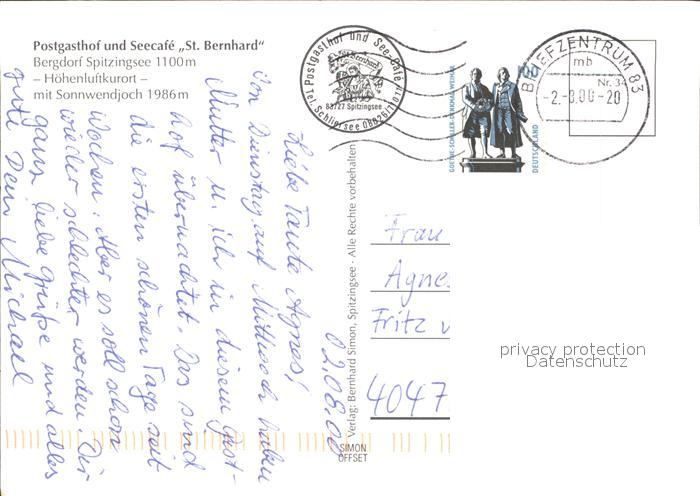 Postgasthof und Seecafé „St. Bernhard“
Bergdorf Spitzingsee 1100m
– Höhenluftkurort –
mit Sonnwendjoch 1986m
Postgasthof und See-Café
St. Bernhard
83727 Spitzingsee
Tel. Schliersee 08026/71011
100
GOETHE-SCHILLER-DENKMAL WEIMAR
DEUTSCHLAND
BRIEFZENTRUM 83
mb
-2.-8.00-20
Nr. 3
02.08.00
Liebe Tante Agnes!
Von Dienstag auf Mittwoch haben
Mutter u. ich in diesem Gast-
hof übernachtet. Das sind
die ersten schönen Tage seit
Wochen. Aber es soll schon
wieder schlechter werden. Dir
ganz liebe Grüße und alles
gute Dein Michael
Verlag: Bernhard Simon, Spitzingsee · Alle Rechte vorbehalten
SIMON
OFFSET
Frau
Agnes
Fritz
4047
privacy protection
Datenschutz